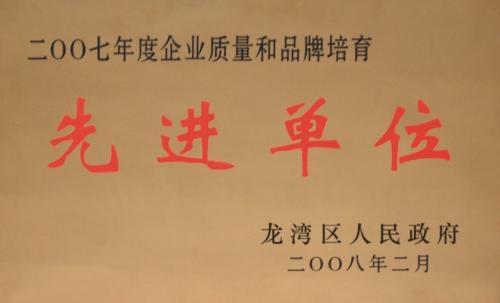 二〇〇七年度企业质量和品牌培育
先进单位
龙湾区人民政府
二〇〇八年二月